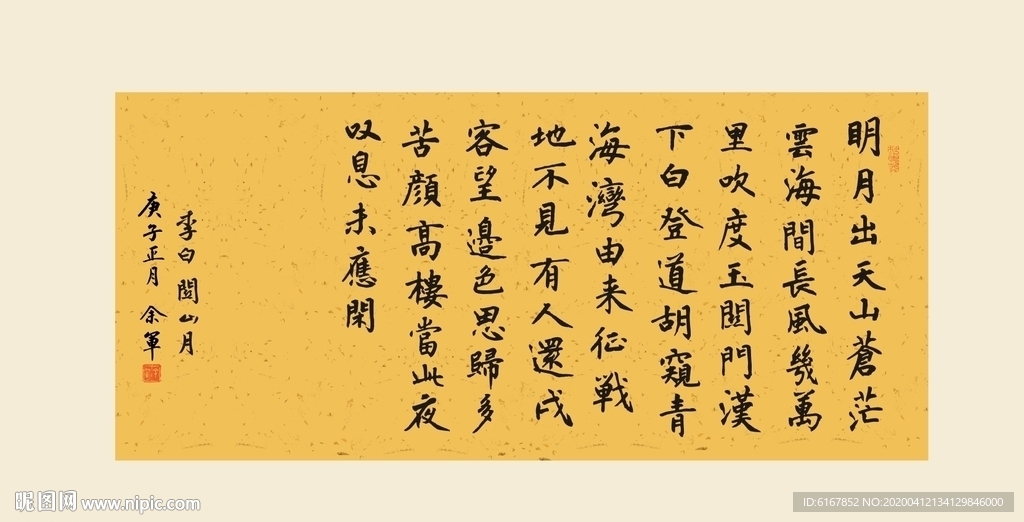 明月出天山蒼茫
雲海間長風幾萬
里吹度玉関門漢
下白登道胡窺青
海灣由来征戦
地不見有人還戍
客望邉色思歸多
苦顔高樓當此夜
叹息未應閑
李白関山月
庚子正月 余軍
昵图网 www.nipic.com
ID:6167852 NO:20200412134129846000